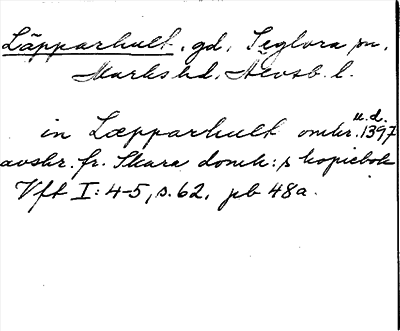 Läpparhult, gd, Seglora sn,
Marks hd, Älvsb. l.
u.d.
in Læpparhult omkr. 1397
avskr. fr. Skara domk:s kopiebok
Vft I: 4-5, s. 62, pb 48a.